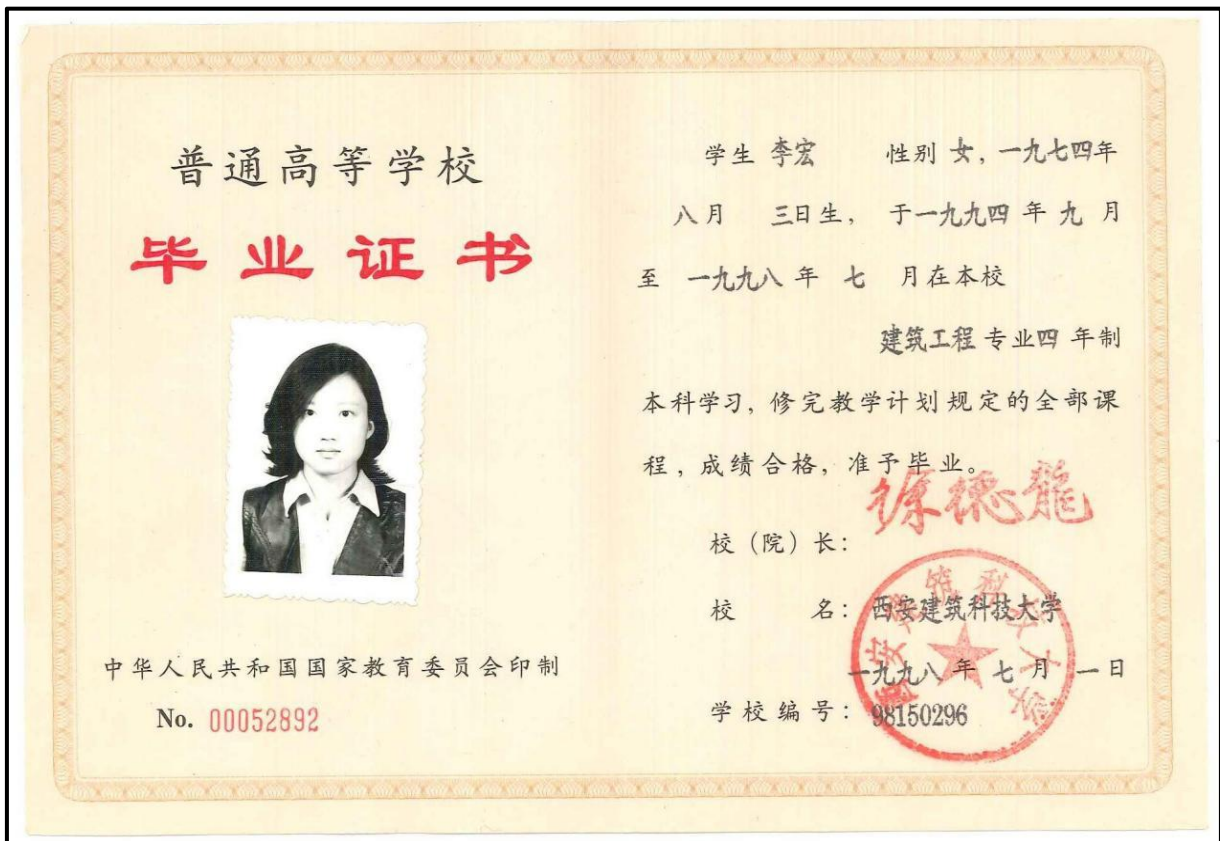 普通高等学校
毕业证书
中华人民共和国国家教育委员会印制
No. 00052892
学生 李宏 性别 女，一九七四年
八月 三日生， 于一九九四 年 九 月
至 一九九八 年 七 月在本校
建筑工程 专业四 年制
本科学习，修完教学计划规定的全部课
程，成绩合格，准予毕业。
徐德龍
校（院）长：
校 名：西安建筑科技大学
一九九八 年 七 月 一日
学校编号：98150296
西安建筑科技大学